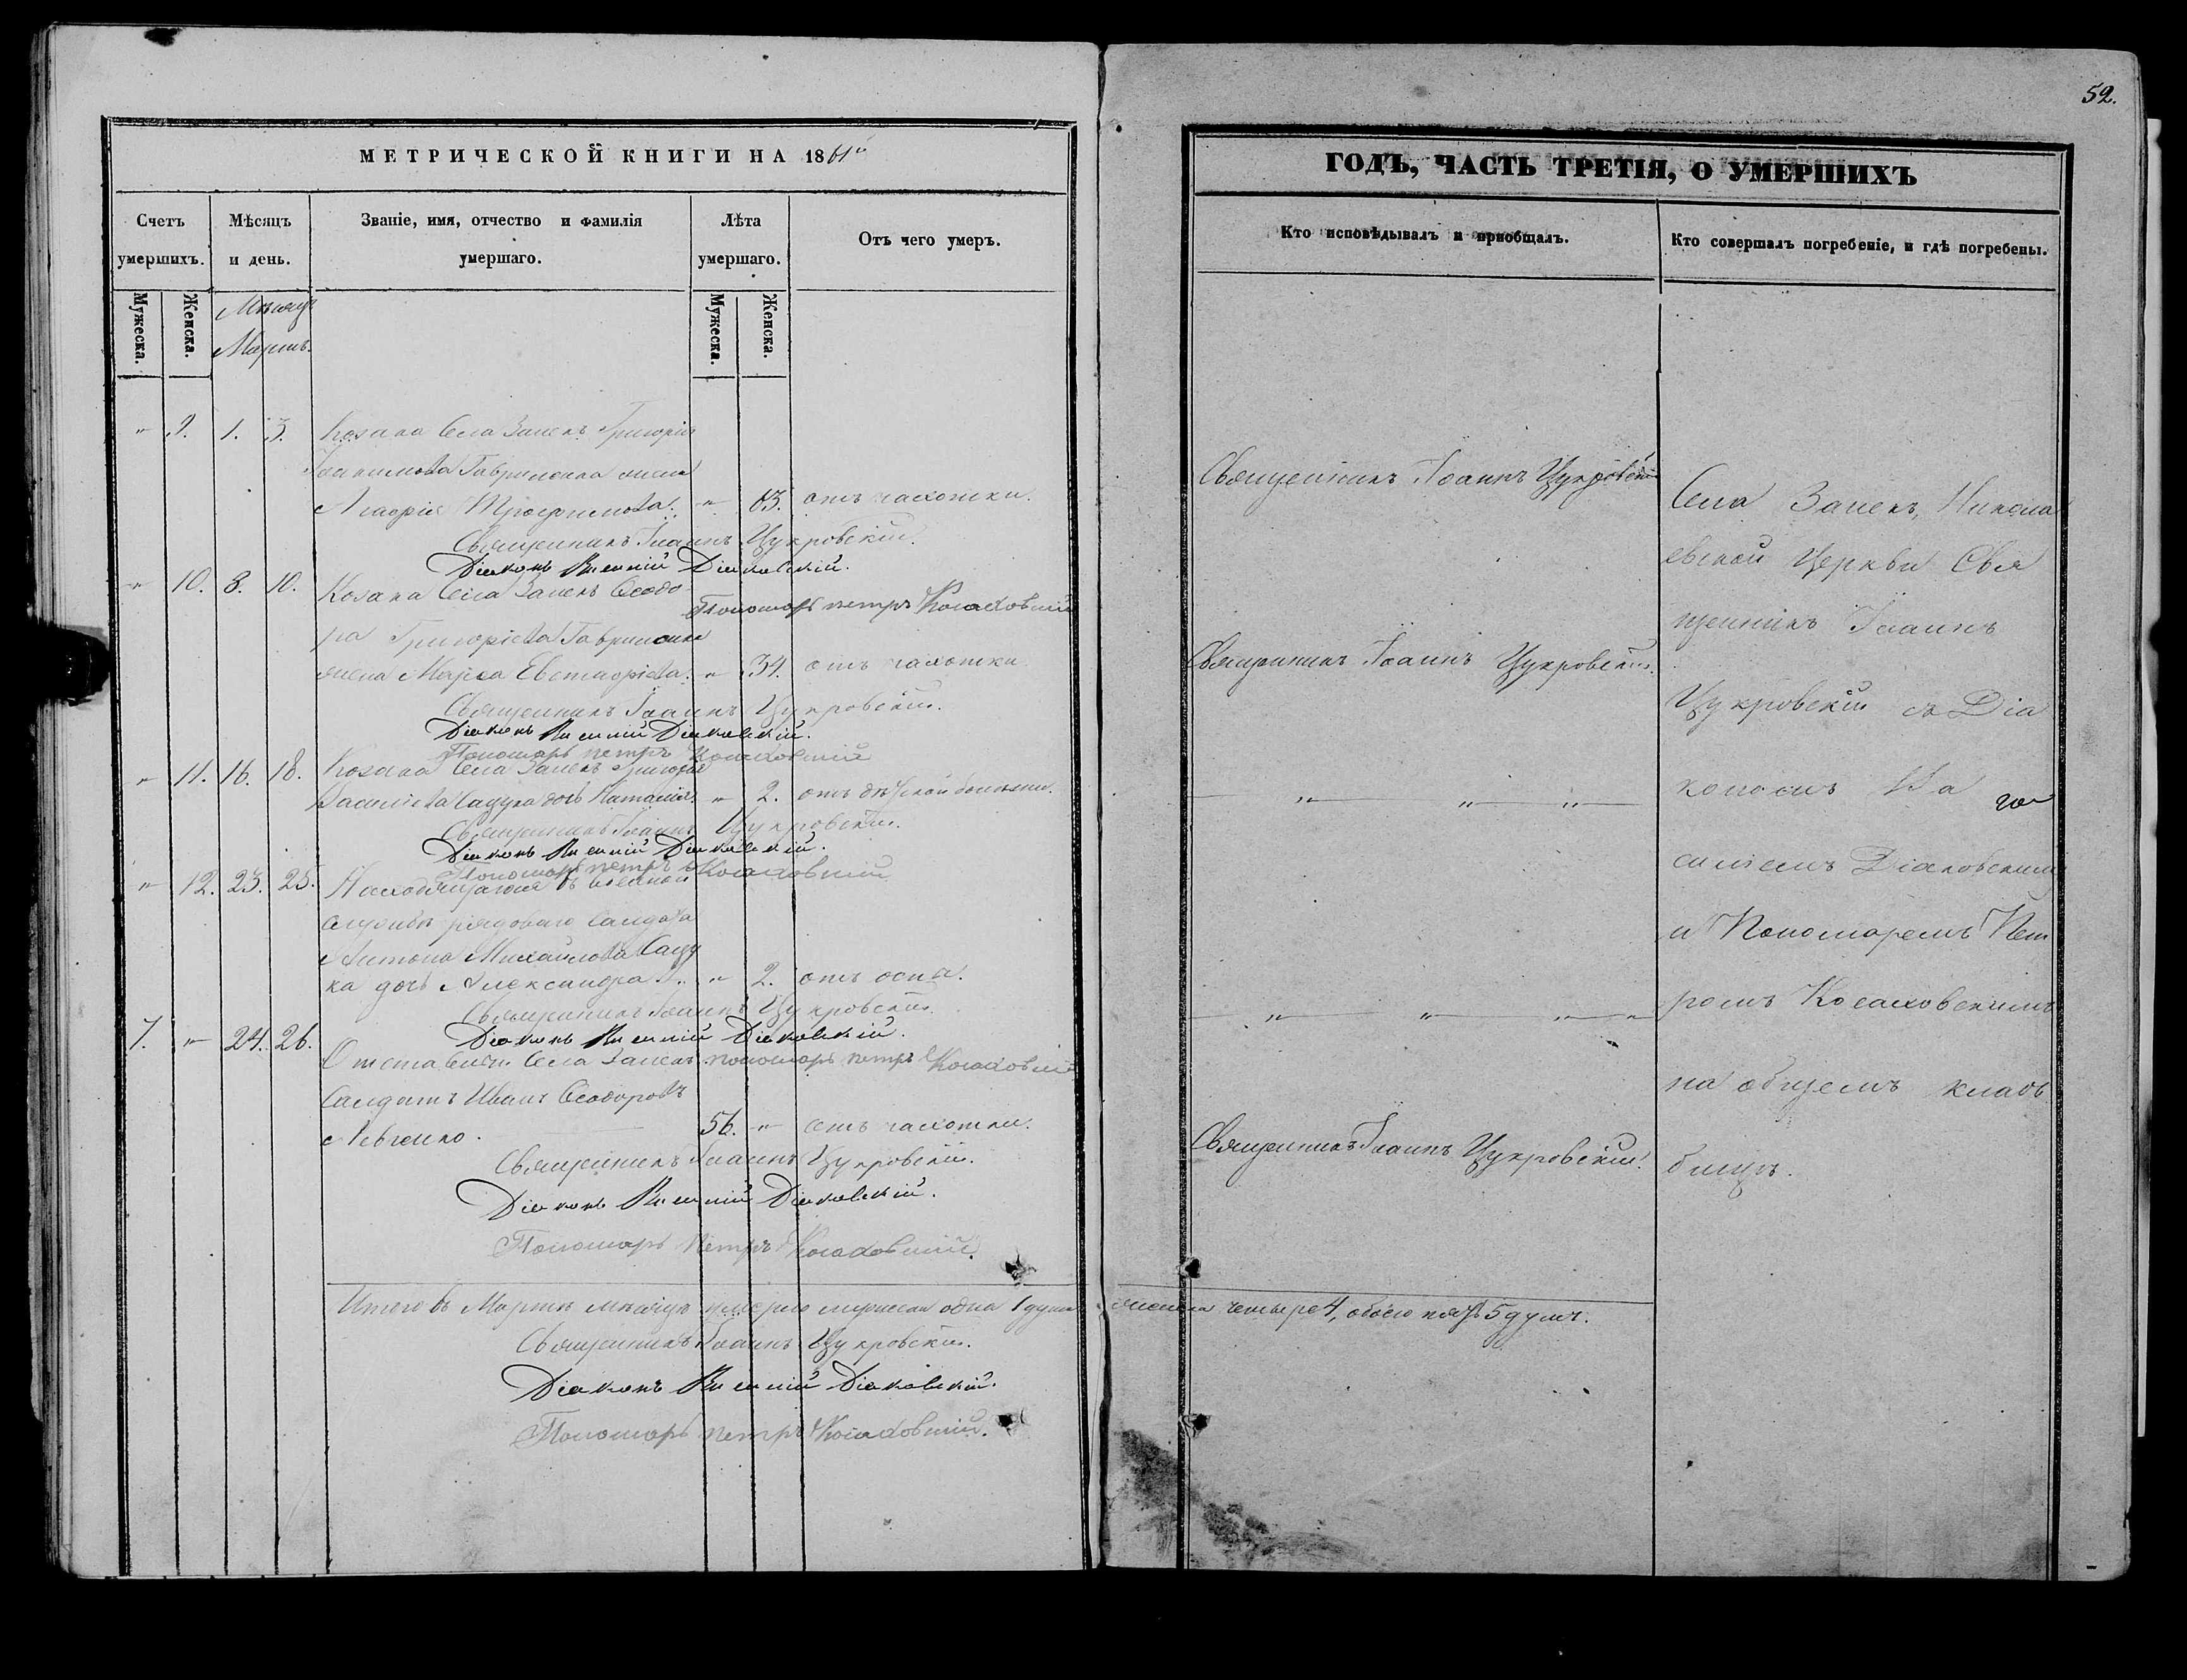 52.
МЕТРИЧЕСКОЙ КНИГИ НА 1861й
Счетъ умершихъ.
Мѣсяцъ и день.
Званіе, имя, отчество и фамилія умершаго.
Лѣта умершаго.
Отъ чего умеръ.
Мужеска.
Женска.
Мѣсяцъ
Мартъ.
Мужеска.
Женска.
" 9. 1. 3. Козака Села Запекъ Григорія
Іоакимова Гавриленка жена
Агафія Трофимова. " 63. отъ чахотки.
Священникъ Іоаннъ Цукровскій.
Діаконъ Василій Діаковскій.
Пономарь Петръ Косаковскій
" 10. 8. 10. Козака Села Запекъ Ѳеодо
ра Григоріева Гавриленка
жена Марѳа Евстафіева. " 34. отъ чахотки
Священникъ Іоаннъ Цукровскій.
Діаконъ Василій Діаковскій.
Пономарь Петръ Косаковскій
" 11. 16. 18. Козака Села Запекъ Григорія
Василіева Сацука дочь Наталія. " 2. отъ дѣтской болѣзни.
Священникъ Іоаннъ Цукровскій.
Діаконъ Василій Діаковскій.
Пономарь Петръ Косаковскій
" 12. 23. 25. Находящагося въ военной
службѣ рядоваго Салдата
Антона Михайлова Сацу
ка дочь Александра. " 2. отъ оспы.
Священникъ Іоаннъ Цукровскій.
Діаконъ Василій Діаковскій.
Пономарь Петръ Косаковскій
7. " 24. 26. Отставный Села Запекъ
Салдатъ Иванъ Ѳеодоровъ
Левченко. 56. " отъ чахотки.
Священникъ Іоаннъ Цукровскій.
Діаконъ Василій Діаковскій.
Пономарь Петръ Косаковскій.
Итого въ Мартѣ мѣсяцѣ умерло мужеска одна 1 душа, женска четыре 4, обоего пола 5 душъ.
Священникъ Іоаннъ Цукровскій.
Діаконъ Василій Діаковскій.
Пономарь Петръ Косаковскій.
ГОДЪ, ЧАСТЬ ТРЕТІЯ, О УМЕРШИХЪ
Кто исповѣдывалъ и пріобщалъ.
Кто совершалъ погребеніе, и гдѣ погребены.
Священникъ Іоаннъ Цукровскій
Священникъ Іоаннъ Цукровскій.
" " "
" " "
Священникъ Іоаннъ Цукровскій.
Села Запекъ, Никола
евской Церкви Свя
щенникъ Іоаннъ
Цукровскій съ Діа
кономъ Ва
силіемъ Діаковскимъ
и Пономаремъ Пет
ромъ Косаковскимъ
на общемъ кладъ
бищѣ.